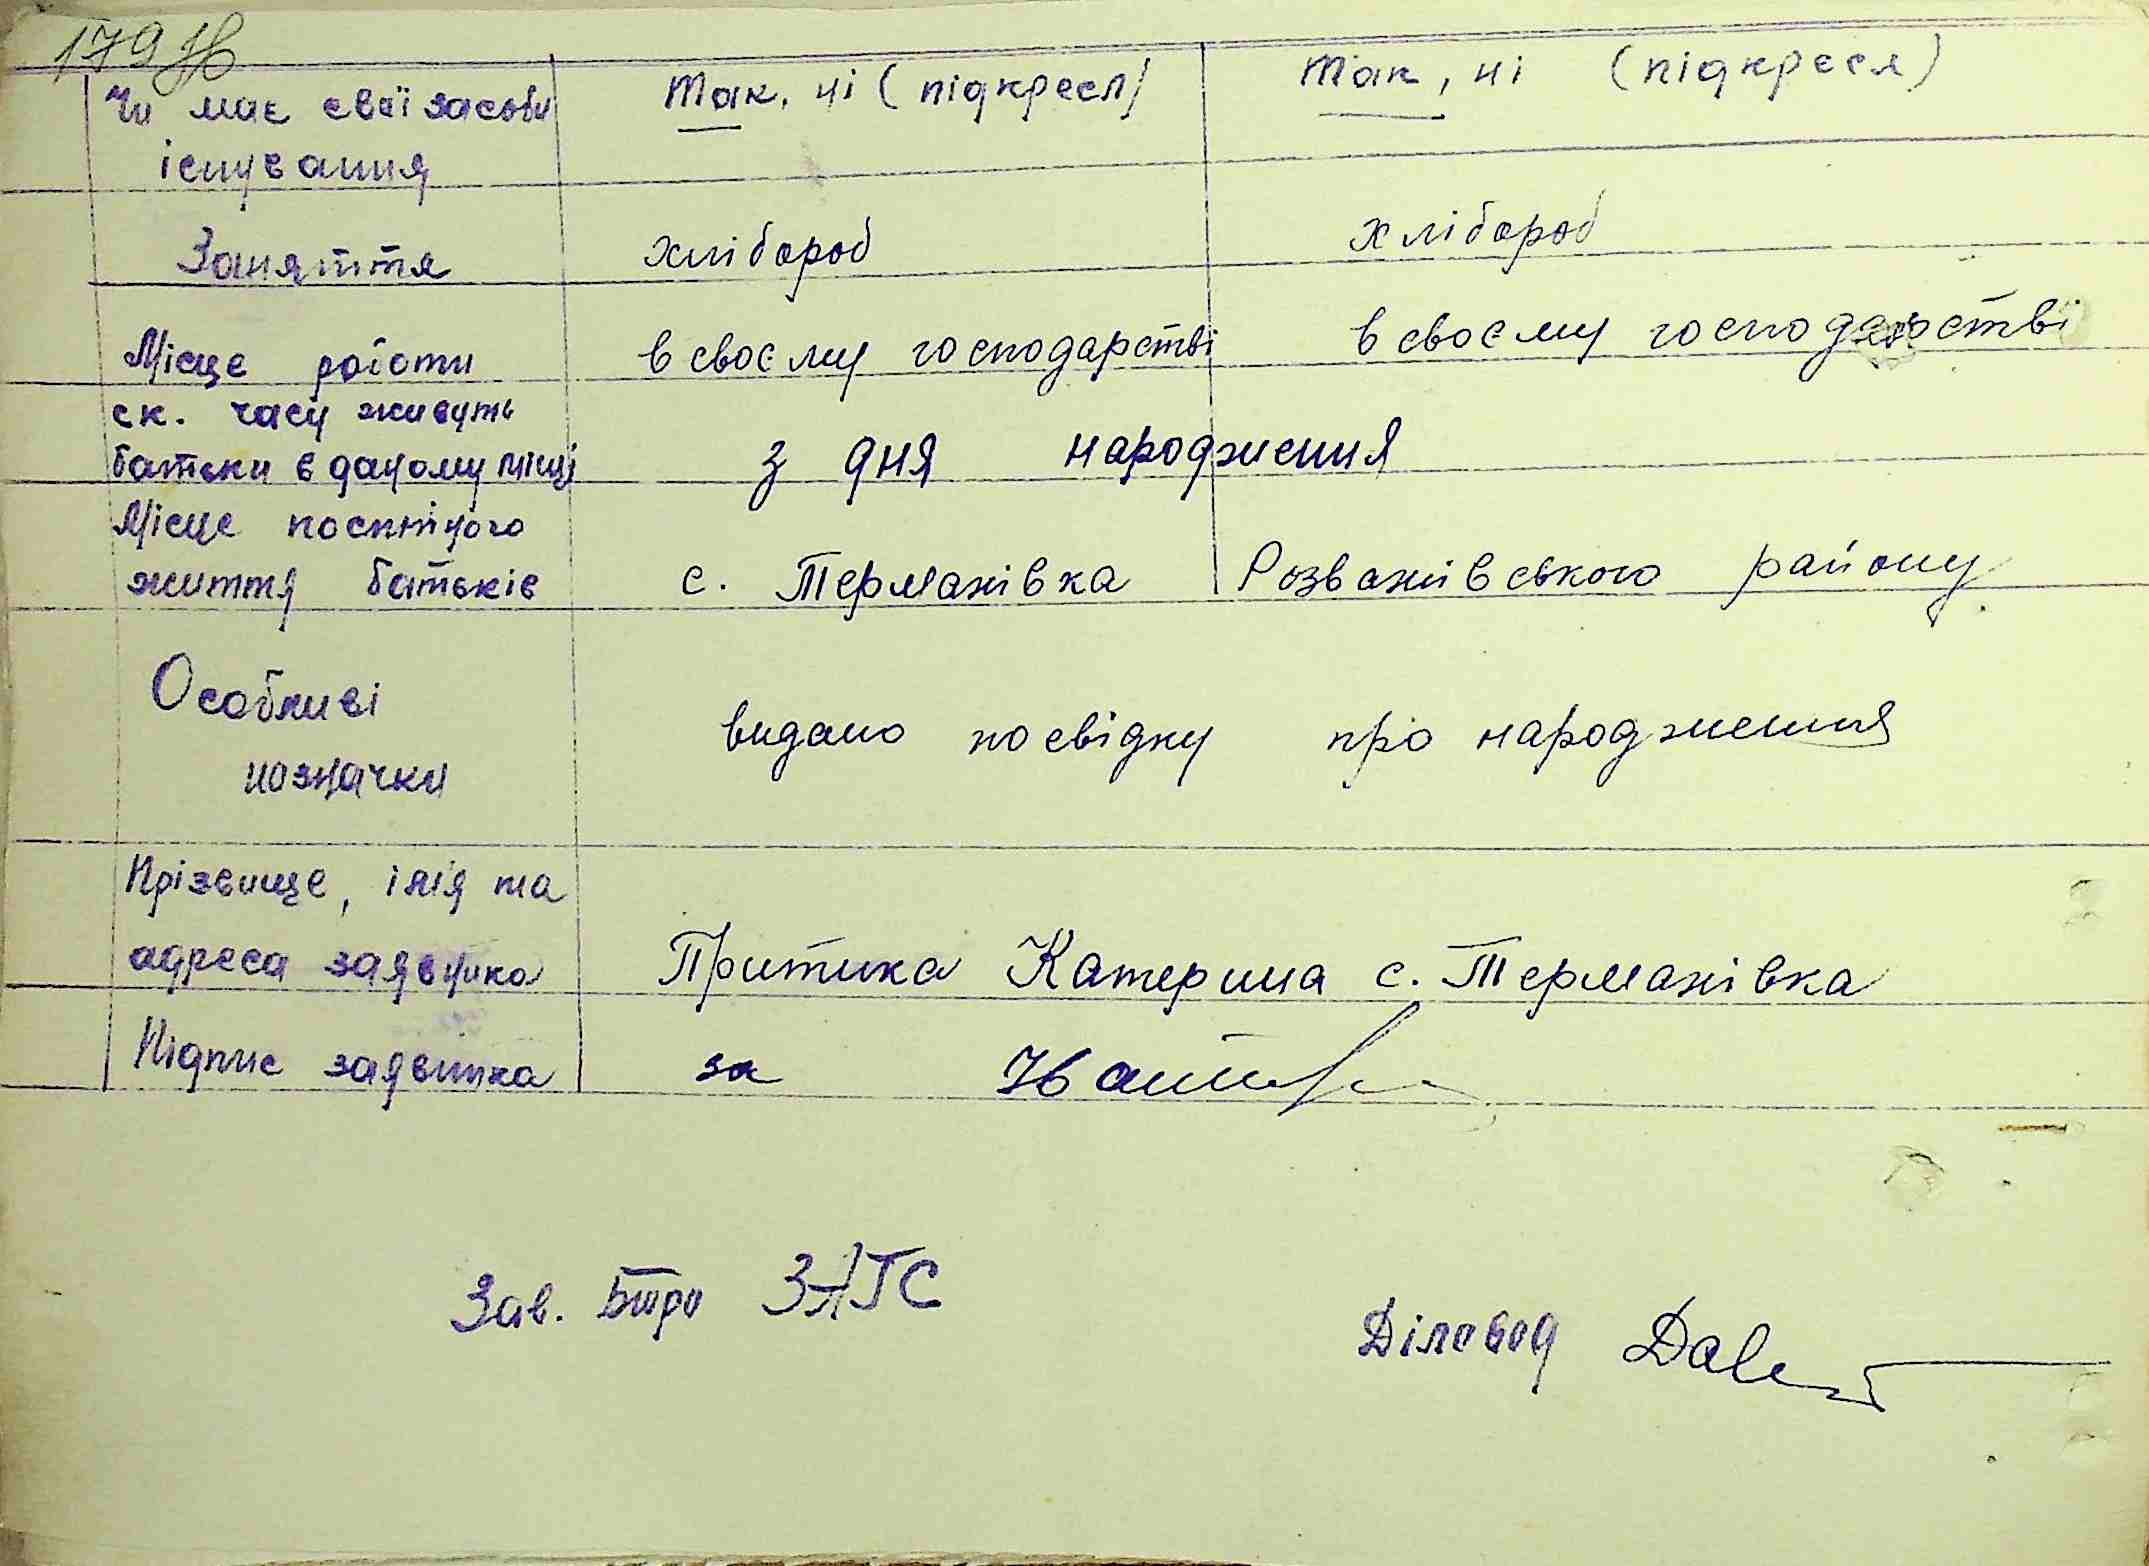 179
Чи має свої засоби | так, ні (підкресл) | так, ні (підкресл)
існування
Заняття | хлібороб | хлібороб
Місце роботи | в своєму господарстві | в своєму господарстві
ск. часу живуть
батьки в даному місці | з дня народження
Місце постійного
життя батьків | с. Термахівка | Розважівського району
Особливі
позначки | видано посвідку про народження
Прізвище, імія та
адреса заявника | Притика Катерина с. Термахівка
Підпис заявника | за
Зав. Бюро ЗАГС
Діловод